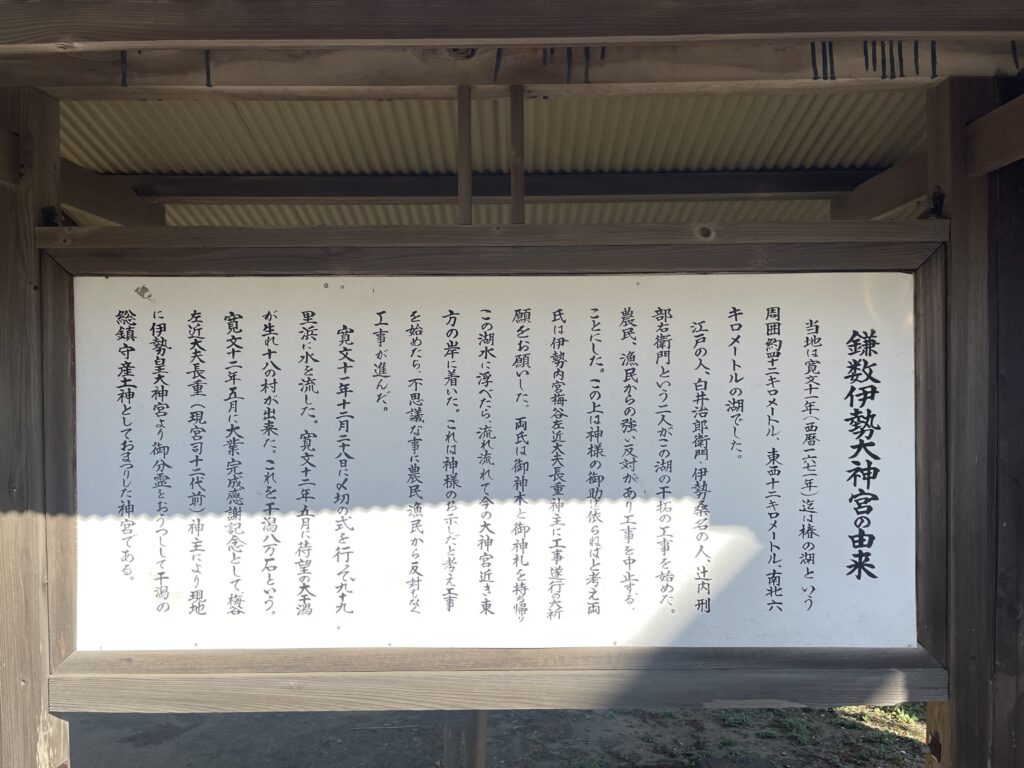 鎌数伊勢大神宮の由来
当地は寛文十一年(西暦一六七一年)迄は椿の湖という
周囲約四十二キロメートル、東西十二キロメートル、南北六
キロメートルの湖でした。
江戸の人、白井治郎衛門、伊勢桑名の人、辻内刑
部右衛門という二人がこの湖の干拓の工事を始めた。
農民、漁民からの強い反対があり工事を中止する
ことにした。この上は神様の御助に依らねばと考え両
氏は伊勢内宮梅谷左近大夫長重神主に工事遂行の大祈
願をお願いした、両氏は御神木と御神札を持ち帰り
この湖水に浮べたら、流れ流れて今の大神宮近き東
方の岸に着いた。これは神様のお示しだと考え工事
を始めたら、不思議な事に農民、漁民から反対もなく
工事が進んだ。
寛文十一年十二月二十八日に〆切の式を行って九十九
里浜に水を流した。寛文十二年五月に待望の大潟
が生れ十八の村が出来た、これを干潟八万石という。
寛文十二年五月に大業完成感謝記念として梅谷
左近大夫長重(現宮司十二代前)神主により現地
に伊勢皇大神宮より御分霊をおうつしして干潟の
総鎮守産土神としておまつりした神宮である。